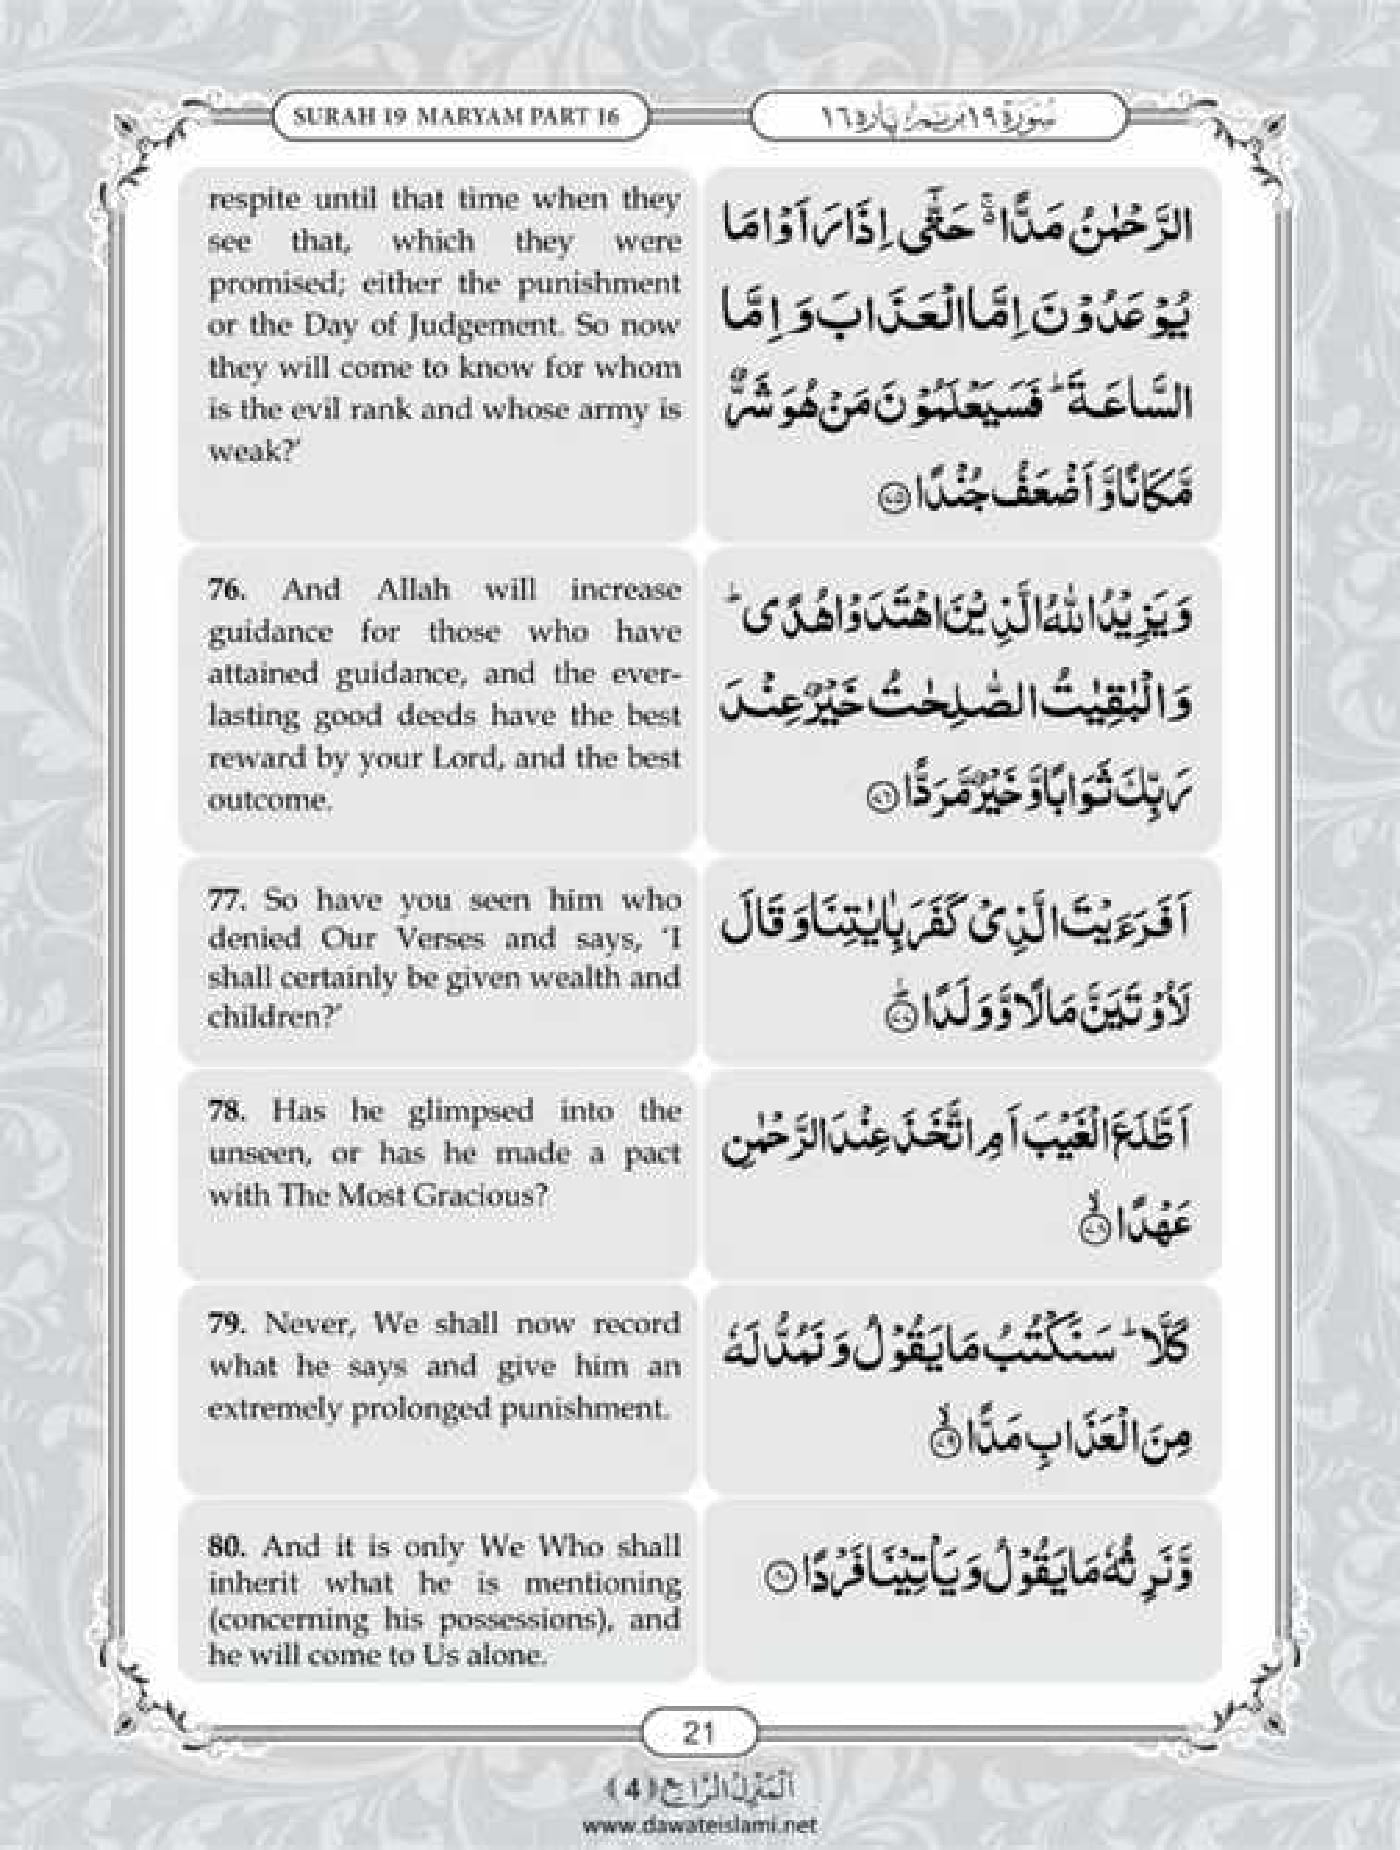 SURAH 19 MARYAM PART 16
سُوۡرَة ١٩ مَرۡيَم، پاره ١٦
respite until that time when they
see that, which they were
promised; either the punishment
or the Day of Judgement. So now
they will come to know for whom
is the evil rank and whose army is
weak?'
الرَّحْمٰنُ مَدًّا ۚ۬ حَتّٰۤى اِذَا رَاَوْا مَا
يُوْعَدُوْنَ اِمَّا الْعَذَابَ وَ اِمَّا
السَّاعَةَ ؕ فَسَيَعْلَمُوْنَ مَنْ هُوَ شَرٌّ
مَّكَانًا وَّ اَضْعَفُ جُنْدًا ﴿۷۵﴾
76. And Allah will increase
guidance for those who have
attained guidance, and the ever-
lasting good deeds have the best
reward by your Lord, and the best
outcome.
وَ يَزِيْدُ اللّٰهُ الَّذِيْنَ اهْتَدَوْا هُدًى ؕ
وَ الْبٰقِيٰتُ الصّٰلِحٰتُ خَيْرٌ عِنْدَ
رَبِّكَ ثَوَابًا وَّ خَيْرٌ مَّرَدًّا ﴿۷۶﴾
77. So have you seen him who
denied Our Verses and says, 'I
shall certainly be given wealth and
children?'
اَفَرَءَيْتَ الَّذِيْ كَفَرَ بِاٰيٰتِنَا وَ قَالَ
لَاُوْتَيَنَّ مَالًا وَّ وَلَدًا ﴿۷۷﴾ؕ
78. Has he glimpsed into the
unseen, or has he made a pact
with The Most Gracious?
اَطَّلَعَ الْغَيْبَ اَمِ اتَّخَذَ عِنْدَ الرَّحْمٰنِ
عَهْدًا ﴿۷۸﴾ۙ
79. Never, We shall now record
what he says and give him an
extremely prolonged punishment.
كَلَّا ؕ سَنَكْتُبُ مَا يَقُوْلُ وَ نَمُدُّ لَهٗ
مِنَ الْعَذَابِ مَدًّا ﴿۷۹﴾ۙ
80. And it is only We Who shall
inherit what he is mentioning
(concerning his possessions), and
he will come to Us alone.
وَّ نَرِثُهٗ مَا يَقُوْلُ وَ يَاْتِيْنَا فَرْدًا ﴿۸۰﴾
21
اَلْمَنْزِلُ الرَّابِع (4)
www.dawateislami.net